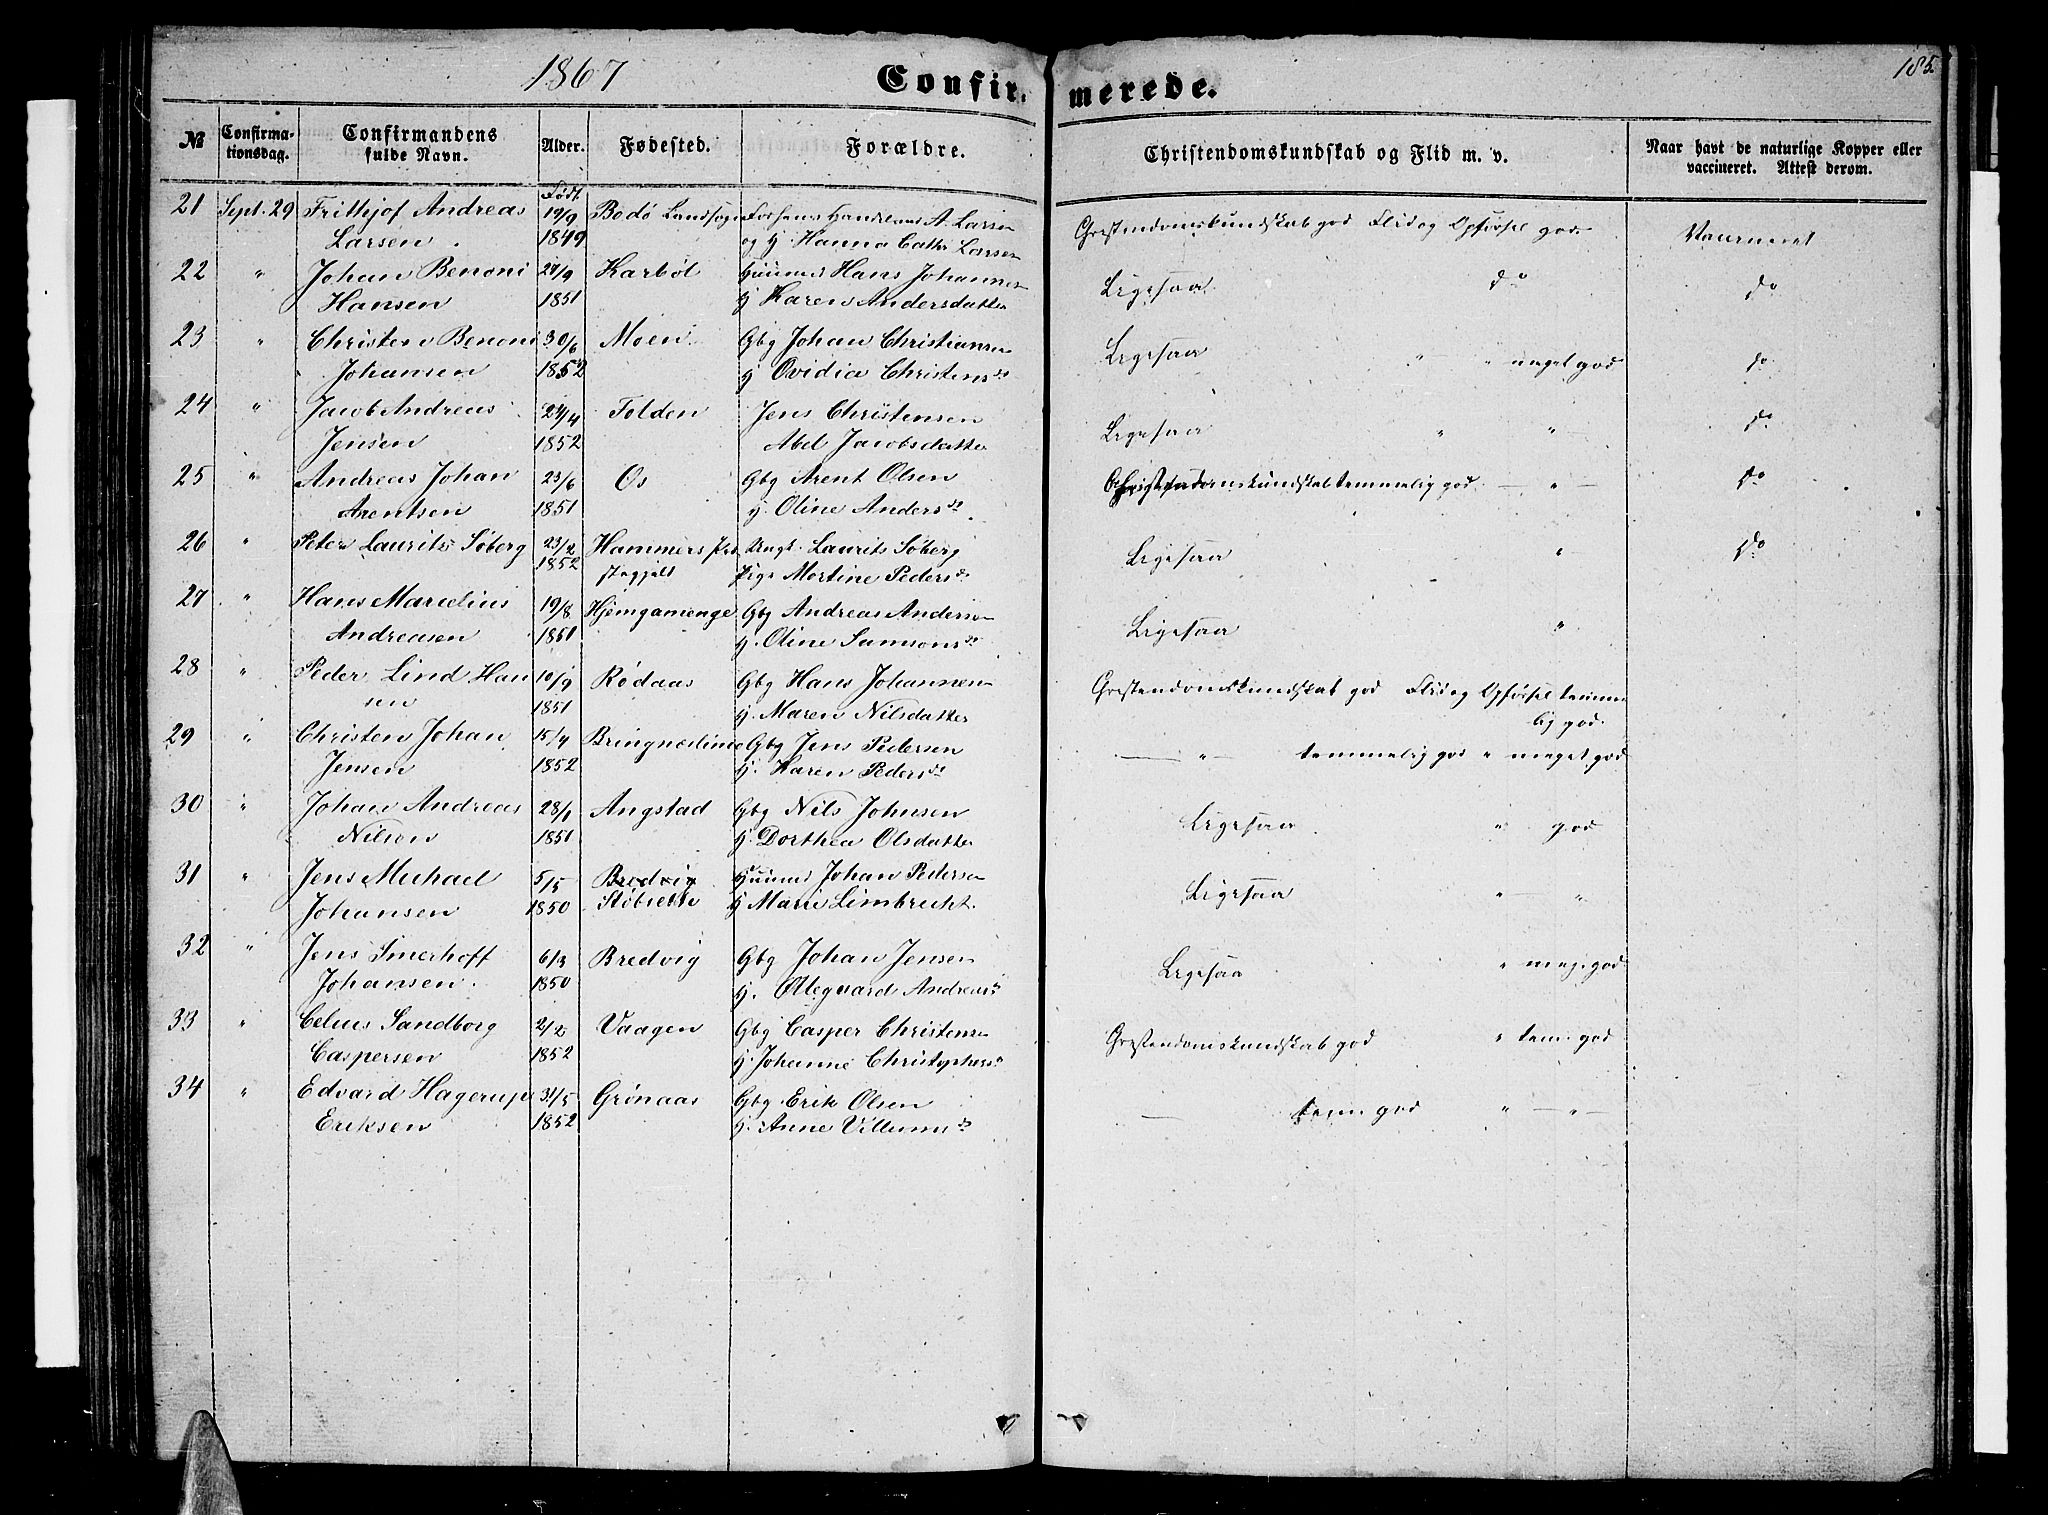 1867
Confirmerede.
185
№
Confirmationsdag.
Confirmandens fulde Navn.
Alder.
Fødested.
Forældre.
Christendomskundskab og Flid m. v.
Naar havt de naturlige Kopper eller vaccineret. Attest derom.
Født
21 Sept. 29 Frithjof Andreas 19/9 Bodø Landsogn A. Larsen god Flid og Opførsel god
Larsen 1849 og H. Hanna Cath. Larsen
22 " Johan Benoni 27/9 Karbøl Huusmd Hans Johannes Ligesaa do do
Hansen 1851 H Karen Andersdatter
23 " Christen Benoni 30/6 Moen Gbg Johan Christiansen Ligesaa " " meget god do
Johansen 1852 H Ovidia Christensd
24 " Jacob Andreas 24/4 Folden Jens Christensen Ligesaa " " do
Jensen 1852 Abel Jacobsdatter
25 " Andreas Johan 23/6 Os Gbg Arent Olsen Christendomskundskab temmelig god " do
Arentsen 1851 H. Oline Andersd
26 " Peter Laurits Søberg 23/2 Hammers Præ Ungk. Laurits Søberg Ligesaa " do
1852 stegjeld Pige Martine Pedersd
27 " Hans Marelius 19/8 Hjemgamenge Gbg Andreas Anderson Ligesaa "
Andreasen 1851 H. Oline Samsonsd
28 " Peder Lind Han 10/9 Rødaas Gbg Hans Johannen god Flid og Opførsel temme
sen 1851 H. Maren Nilsdatter lig god
29 " Christen Johan 15/4 Gbg Jens Pedersen " temmelig god " meget god
Jensen 1852 H. Karen Pedersd
30 " Johan Andreas 28/1 Angstad Gbg Nils Johnsen Ligesaa " god
Nilsen 1851 H. Dorthea Olsdatter
31 " Jens Michael 5/5 Bredvig Huusmd Johan Pedersen Ligesaa " "
Johansen 1850 H Marie Limbrecht
32 " Jens Smerhoff 6/3 Bredvig Gbg Johan Jensen Ligesaa " meg. god
Johansen 1850 H. Ollegaard Andreasd
33 " Celius Sandborg 2/2 Vaagen Gbg Casper Christensen god " tem. god
Caspersen 1852 H. Johanne Christophersd
34 " Edvard Hagerup 31/5 Grønaas Gbg Erik Olsen tem. god " "
Eriksen 1852 H. Anne Villumsd